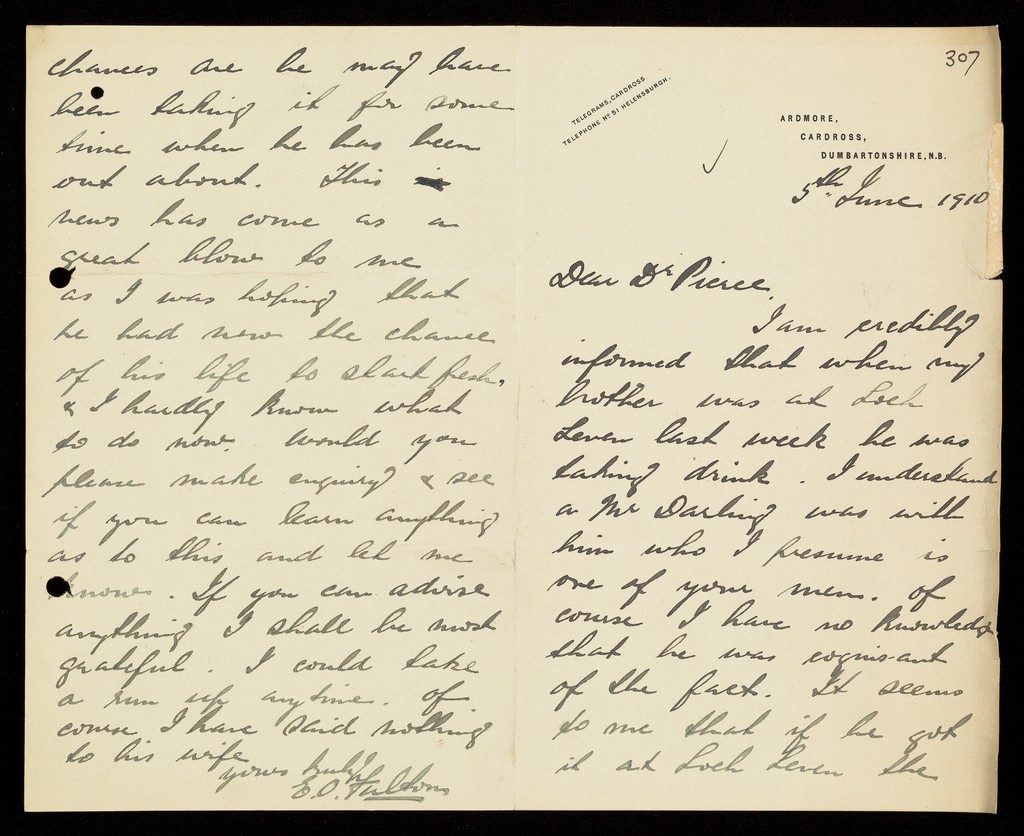 307
TELEGRAMS, CARDROSS.
TELEPHONE No 51 HELENSBURGH.
ARDMORE,
CARDROSS,
DUMBARTONSHIRE, N.B.
5th June 1910
Dear Dr Pierce,
I am credibly
informed that when my
brother was at Loch
Leven last week he was
taking drink. I understand
a Mr Darling was with
him who I presume is
one of your men. Of
course I have no knowledge
that he was cognisant
of the fact. It seems
to me that if he got
it at Loch Leven the
chances are he may have
been taking it for some
time when he has been
out about. This
news has come as a
great blow to me
as I was hoping that
he had now the chance
of his life to start fresh,
& I hardly know what
to do now. Would you
please make enquiry & see
if you can learn anything
as to this and let me
know. If you can advise
anything I shall be most
grateful. I could take
a run up anytime. Of
course I have said nothing
to his wife
yours truly
E.O. Fultons